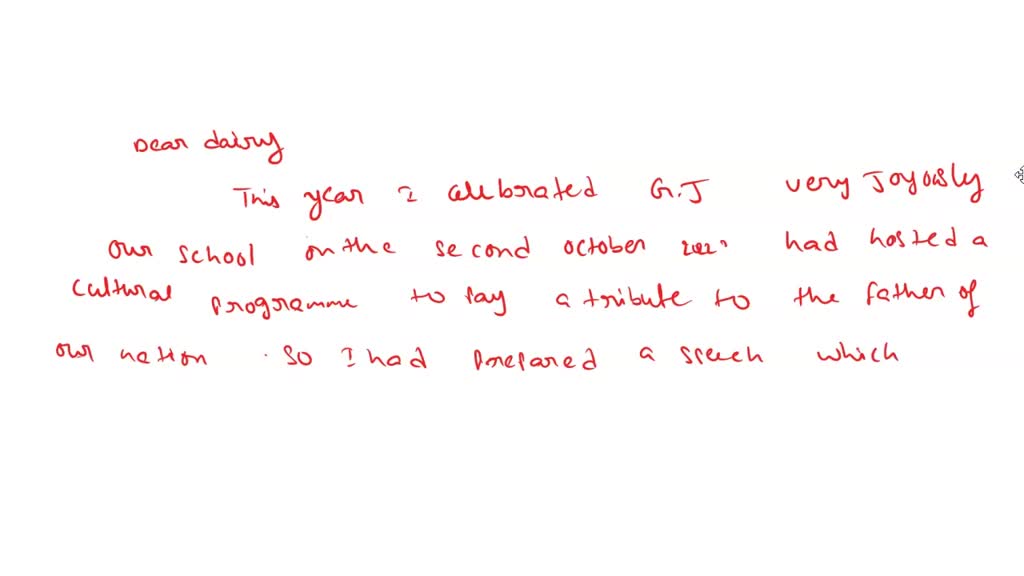 Dear dairy
This year I celebrated G.J very Joyously
our school on the second october had hosted a
cultural programme to pay a tribute to the father of
our nation . so I had prepared a speech which